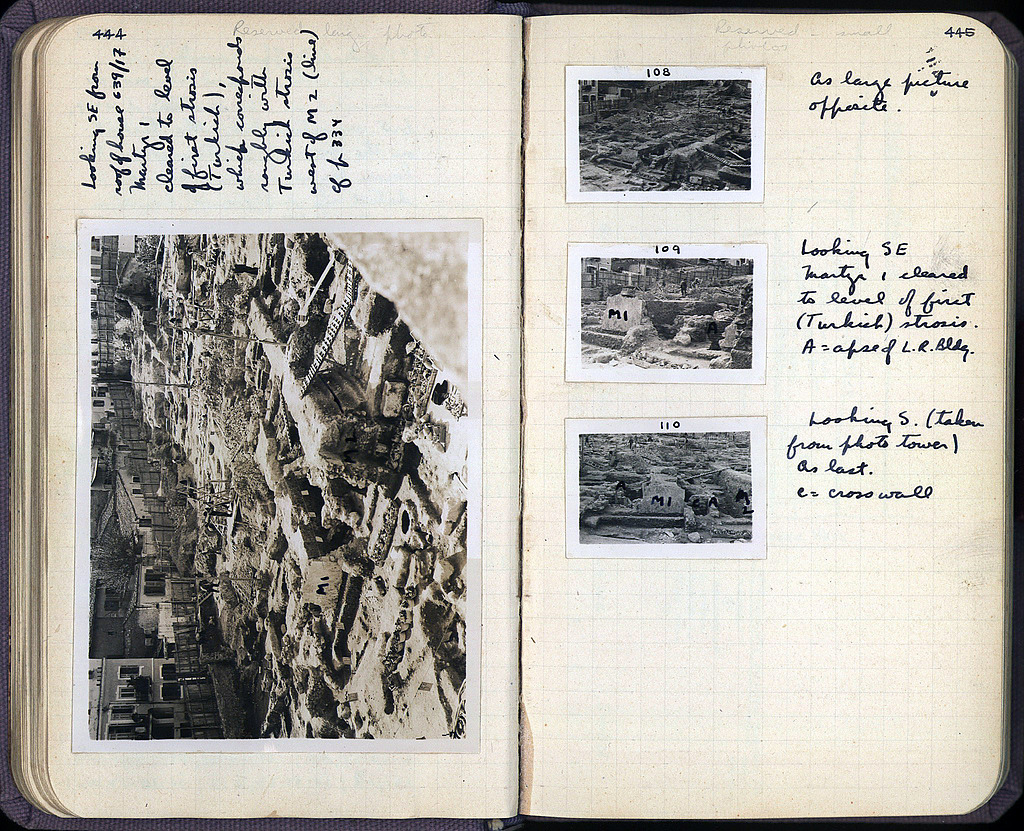 444
Reserved large photo
Looking SE from
roof of house 639/17
Martyr 1
cleared to level
of first strosis
(Turkish),
which corresponds
roughly with
Turkish strosis
west of M 2 (line)
of p 334
M2
M1
445
Reserved small
photos
108
As large picture
opposite.
109
M1
A
Looking SE
Martyr 1 cleared
to level of first
(Turkish) strosis.
A = apse of L.R. Bldg.
110
M1
A
M
2
Looking S. (taken
from photo tower)
As last.
c = cross wall